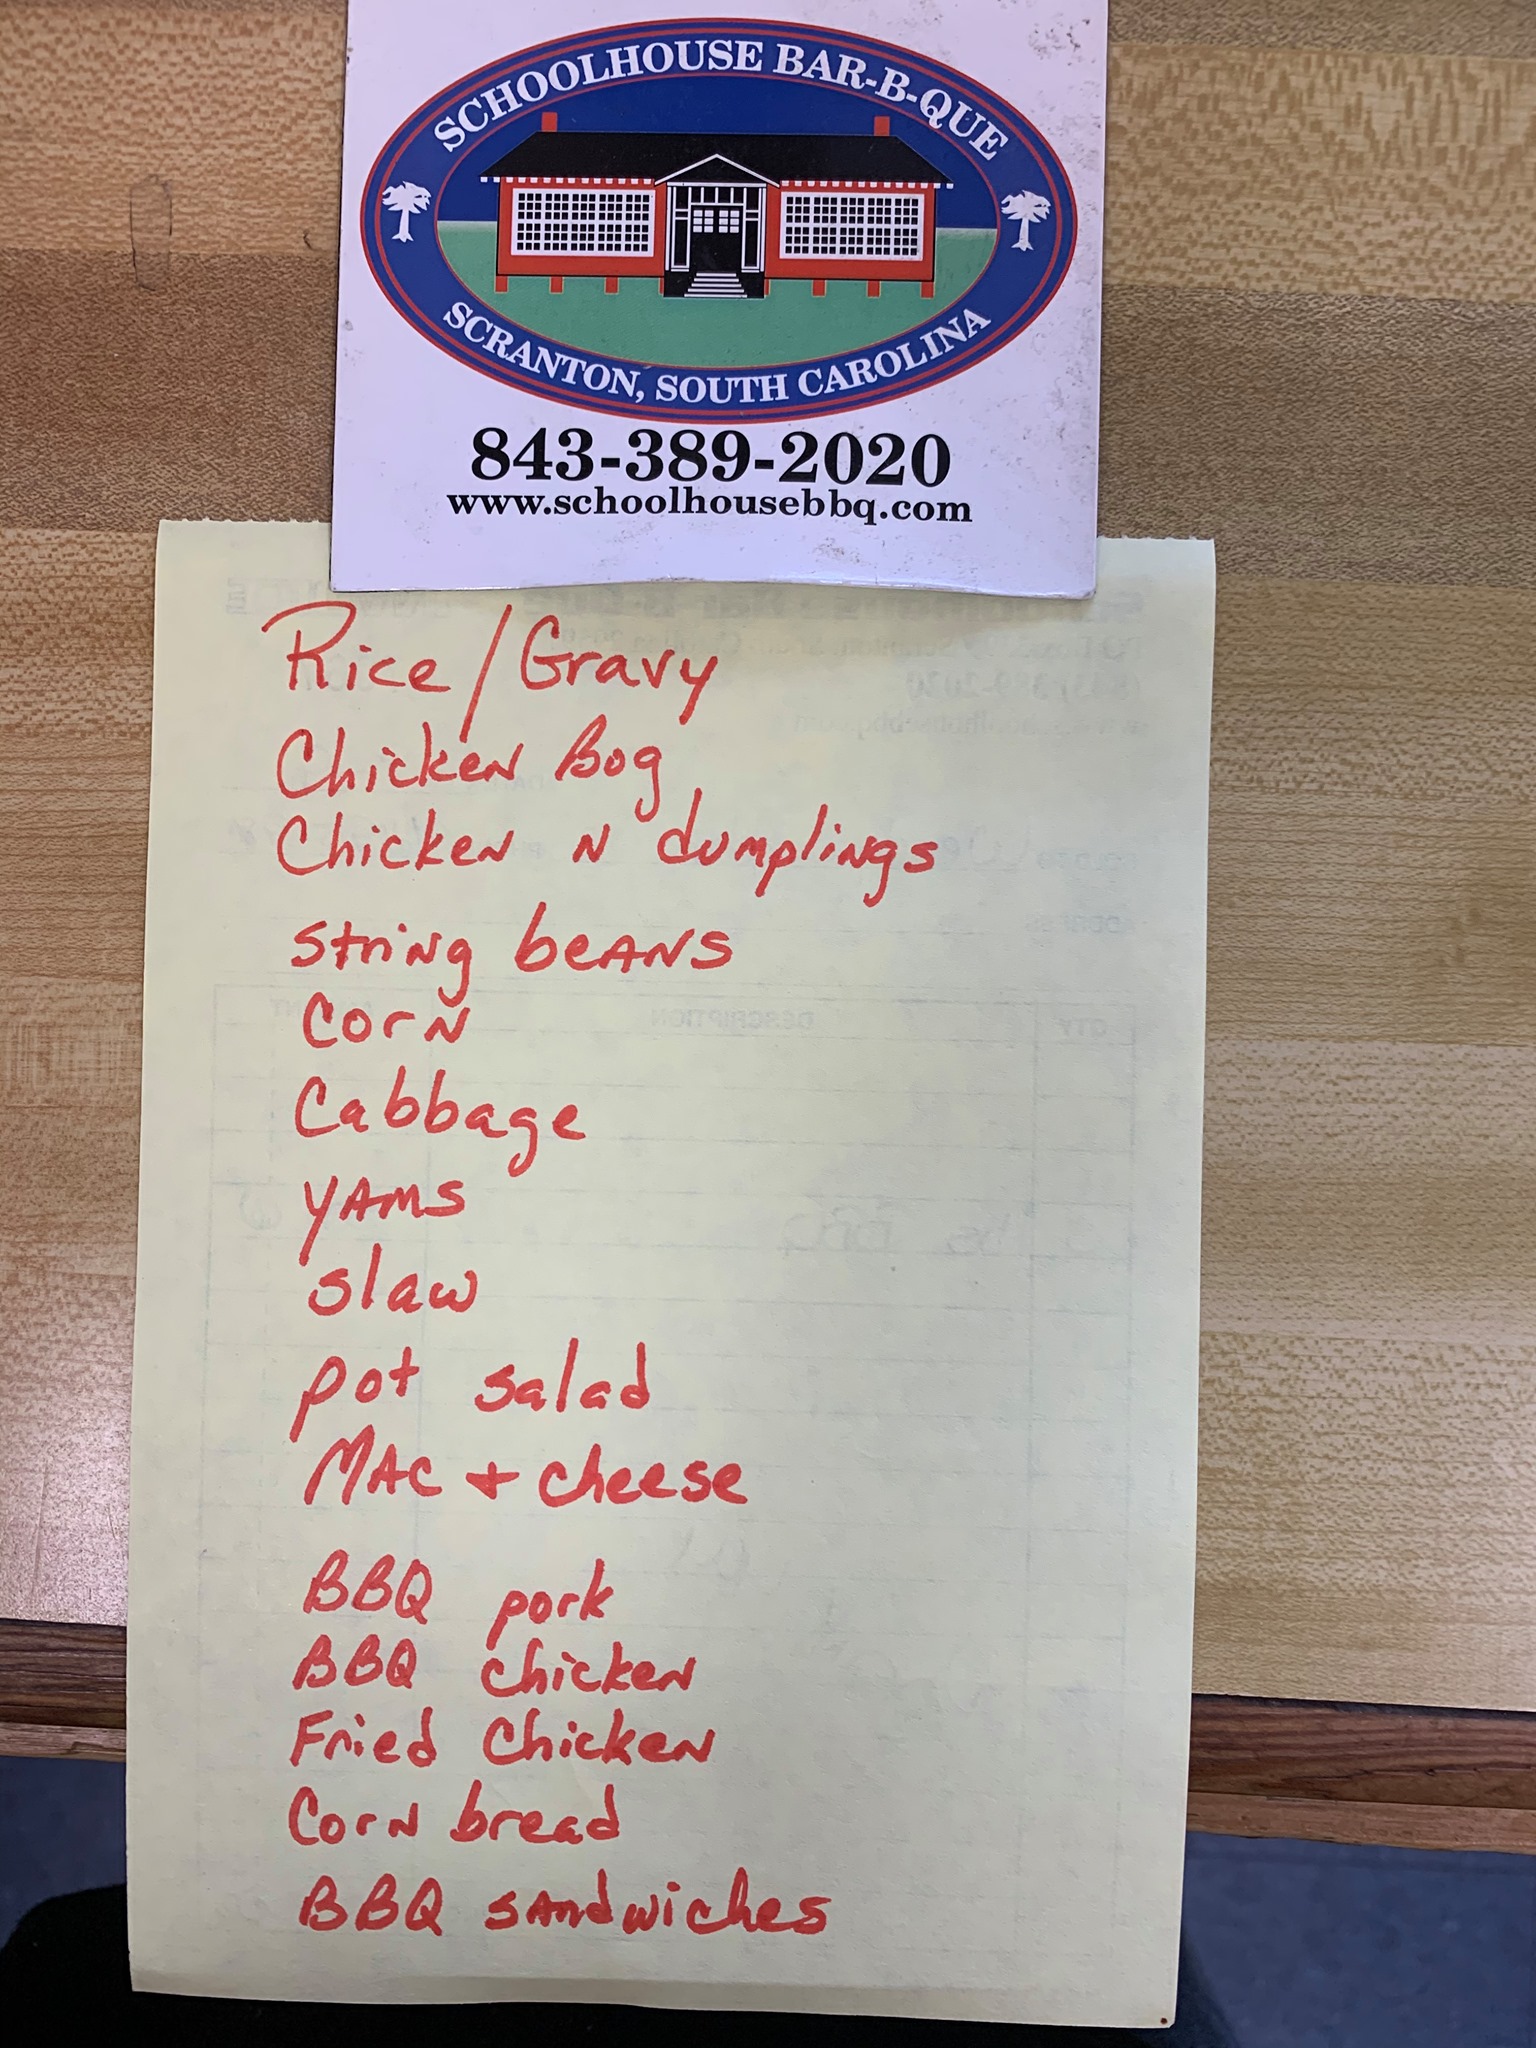 SCHOOLHOUSE BAR-B-QUE
SCRANTON, SOUTH CAROLINA
843-389-2020
www.schoolhousebbq.com
Rice / Gravy
Chicken Bog
Chicken N dumplings
string beans
Corn
Cabbage
YAMS
slaw
pot salad
MAC + cheese
BBQ pork
BBQ chicken
Fried Chicken
Corn bread
BBQ sandwiches